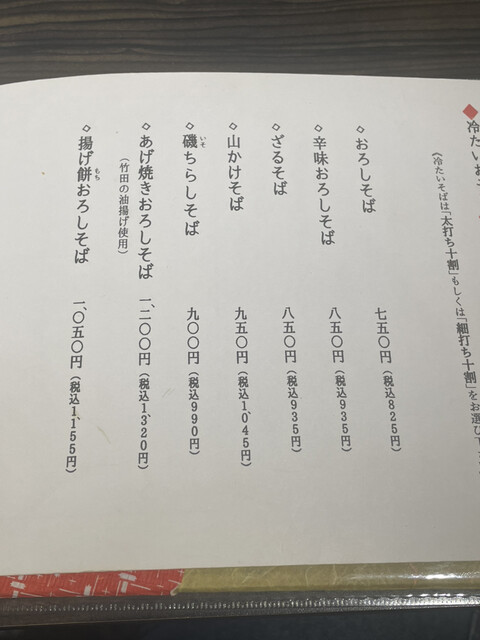 ◆冷たいおろ
《冷たいそばは「太打ち十割」もしくは「細打ち十割」をお選び
◇おろしそば 七五〇円（税込825円）
◇辛味おろしそば 八五〇円（税込935円）
◇ざるそば 八五〇円（税込935円）
◇山かけそば 九五〇円（税込1,045円）
◇磯ちらしそば 九〇〇円（税込990円）
いそ
◇あげ焼きおろしそば 一、二〇〇円（税込1,320円）
（竹田の油揚げ使用）
◇揚げ餅おろしそば 一、〇五〇円（税込1,155円）
もち